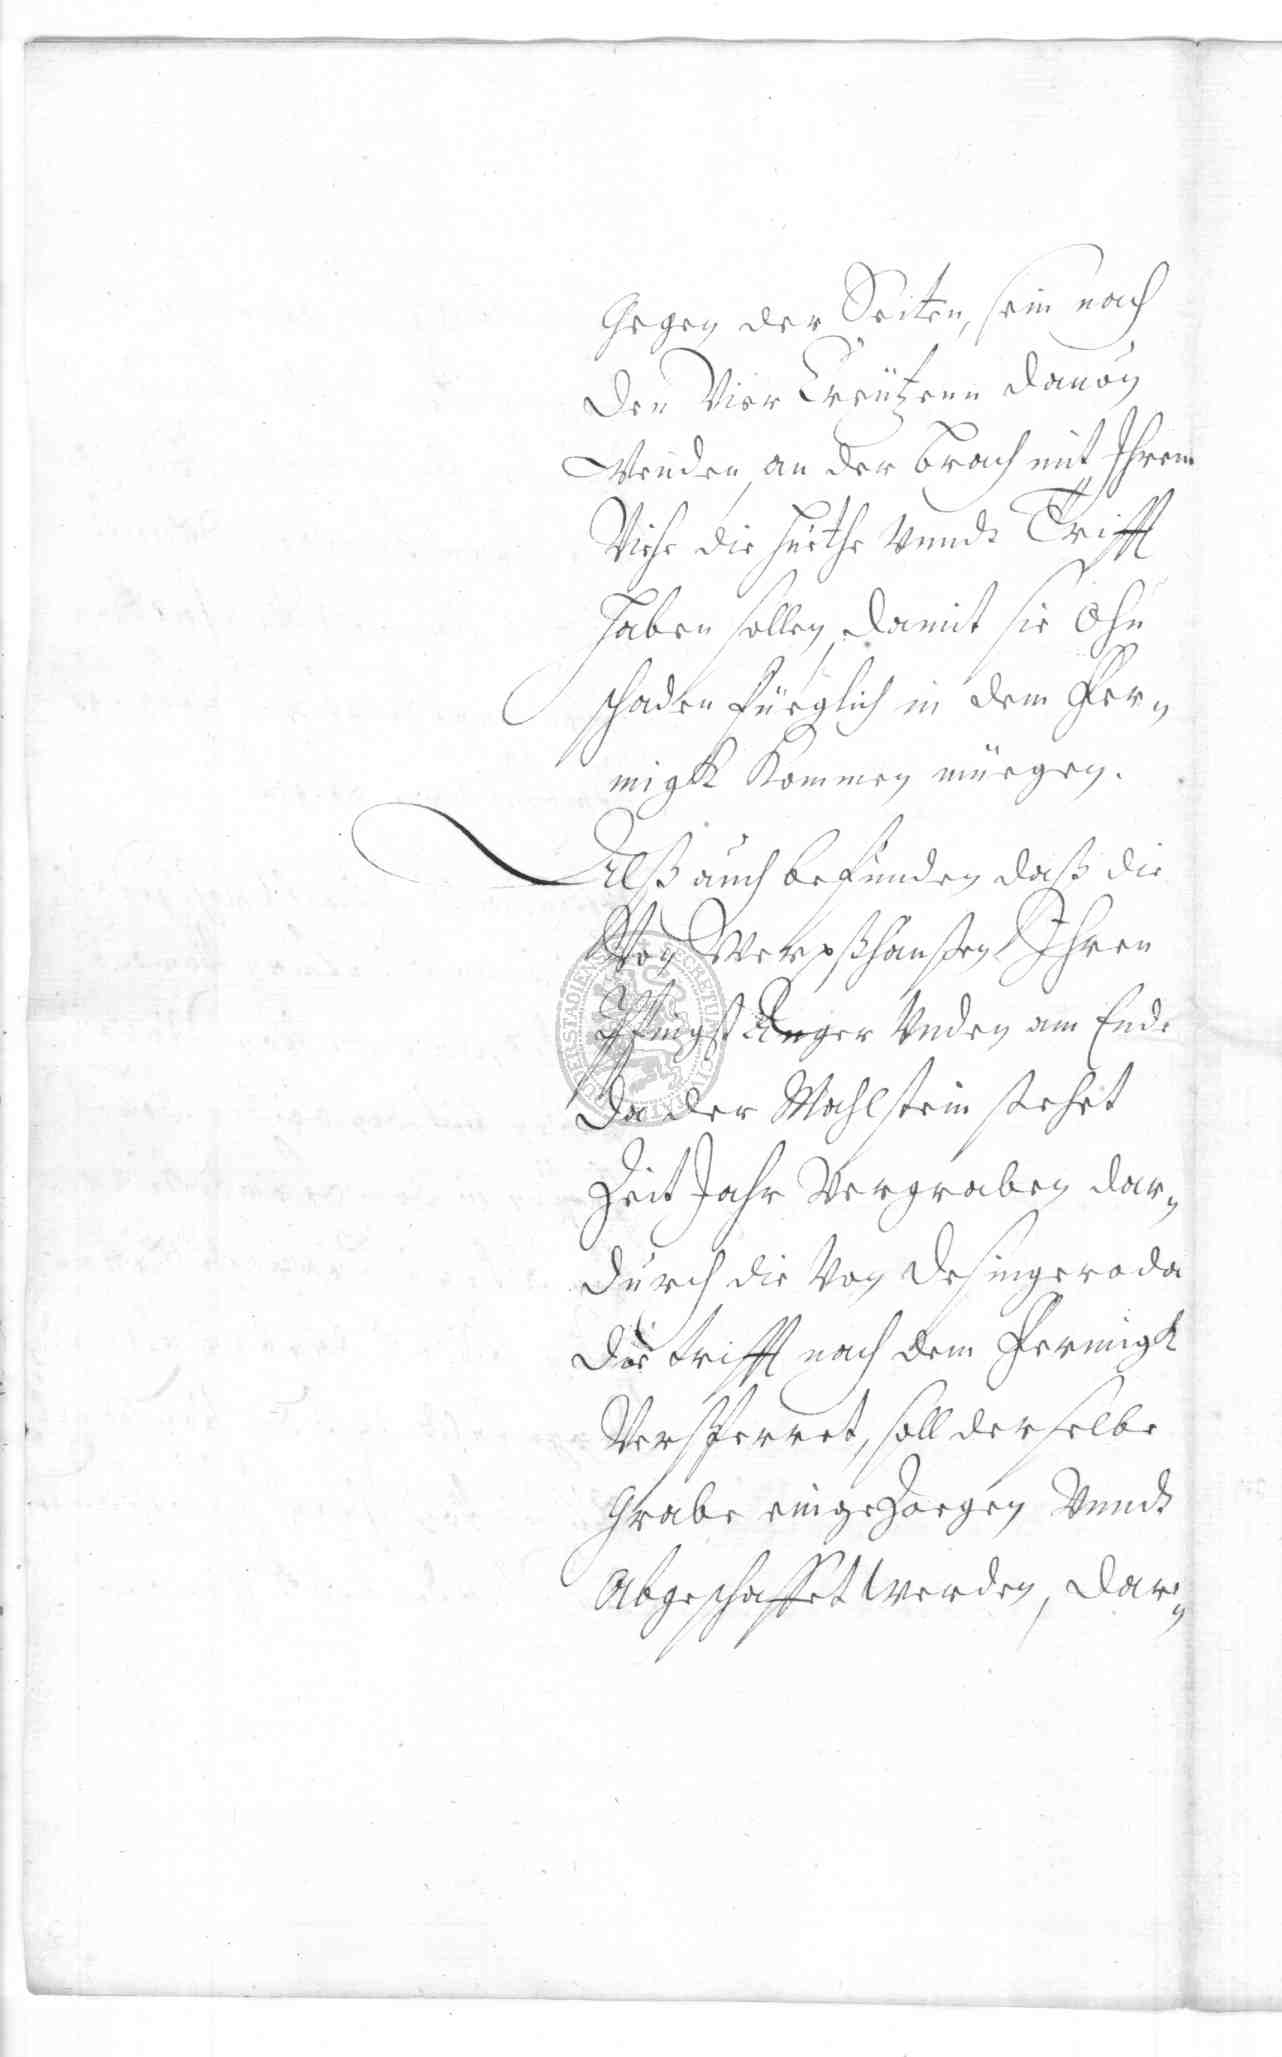 Gegen der Seiten, sein nach
den Vier Creützenn dauon
Wenden, an der brach mit Ihrem
Viehe die hüethe Vnndt Trifft
haben sollen, damit sie Ohn
schaden füeglich in dem Per„
migk Kommen müegen.
Alß auch befunden daß die
Von Werxßhaußen Ihren
Pfingst Anger Vnden am Ende
da der Mahlstein stehet
Zeit Jahr Vergraben dar„
durch die Von Desingeroda
die trifft nach dem Permigk
Versperret, soll derselbe
Grabe eingezoegen Vnndt
Abgeschaffet werden, dar„